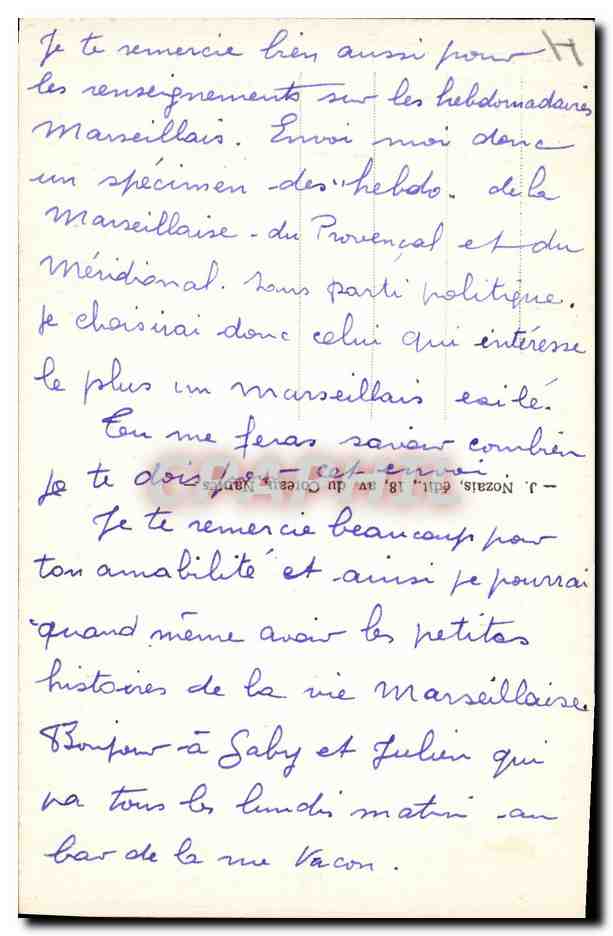 Je te remercie bien aussi pour
les renseignements sur les hebdomadaires
Marseillais. Envoi moi donc
un spécimen des "hebdo. de la
Marseillaise - du Provençal et du
Méridional. sans parti politique.
Je choisirai donc celui qui intéresse
le plus un marseillais exilé.
Tu me feras savoir combien
je te dois pour cet envoi.
J. Nozais, édit., 18, av. du Coteau, Nantes
Je te remercie beaucoup pour
ton amabilité et ainsi je pourrai
quand même avoir les petites
histoires de la vie Marseillaise.
Bonjour à Gaby et Julien qui
va tous les lundis matin au
bar de la rue Vacon.